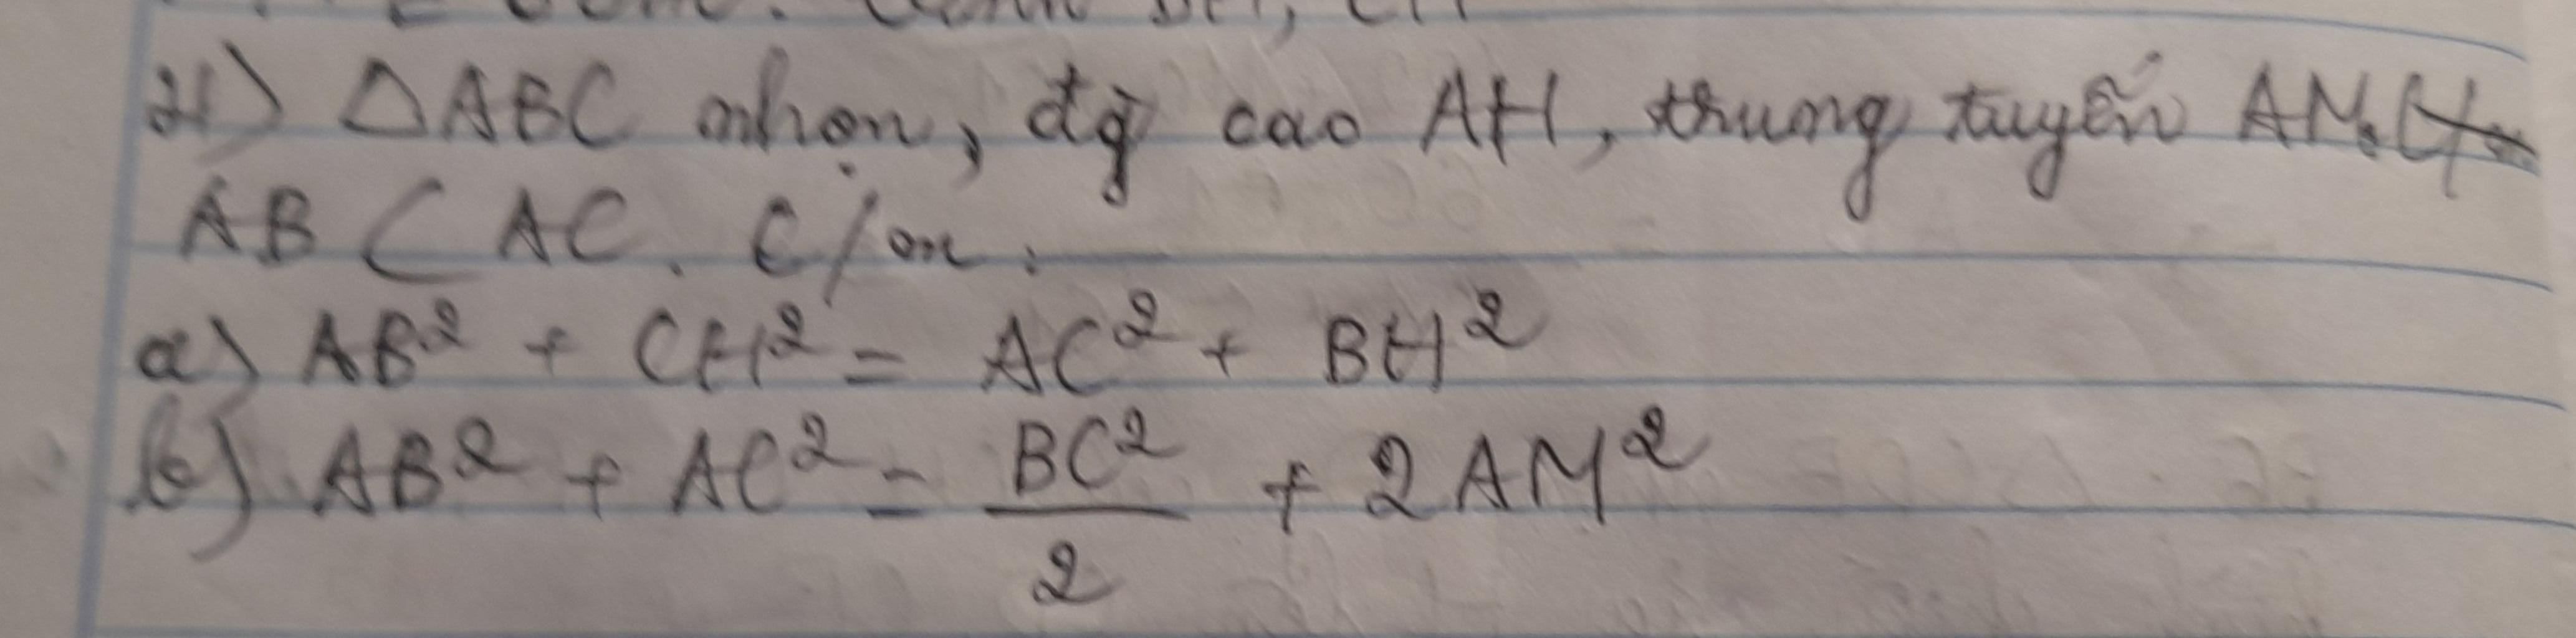 21) △ABC nhọn, đg cao AH, trung tuyến AM.
AB < AC. C/m:
a) AB² + CH² = AC² + BH²
b) AB² + AC² = BC²/2 + 2AM²